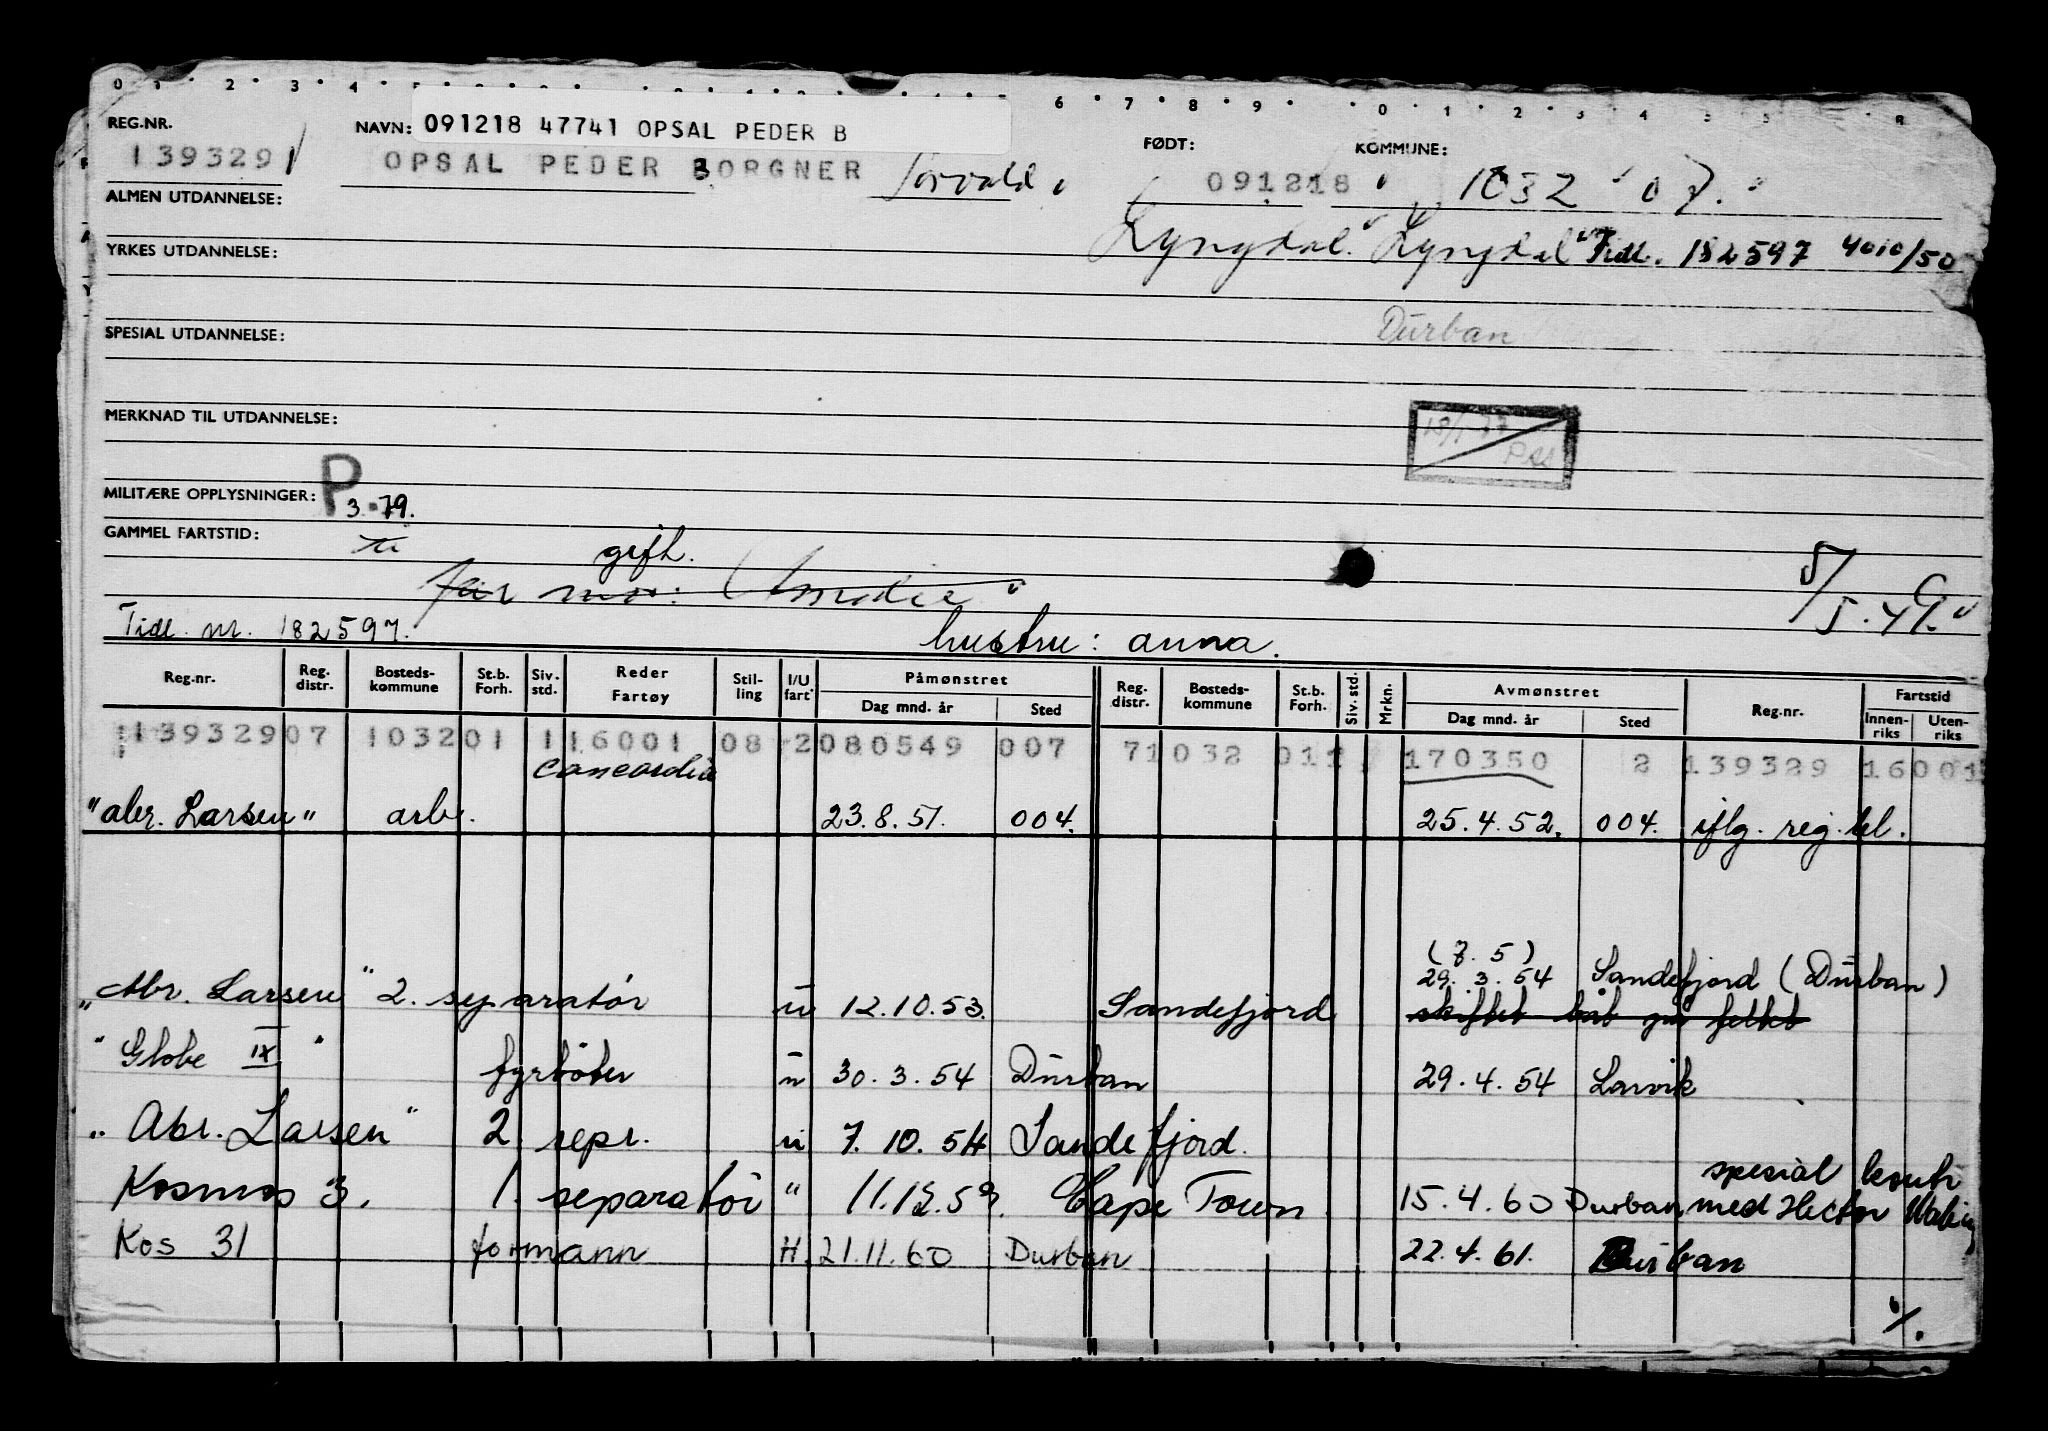 0 1 2 3 4 6 7 8 9 0 1 2 3 4
REG.NR. NAVN: 091218 47741 OPSAL PEDER B FØDT: KOMMUNE:
139329 OPSAL PEDER BORGNER Torvald 091218 1032 07.
ALMEN UTDANNELSE:
Lyngdal. Lyngdal Tidl. 182597 4010/50
YRKES UTDANNELSE:
Durban
SPESIAL UTDANNELSE:
MERKNAD TIL UTDANNELSE:
MILITÆRE OPPLYSNINGER: P 3.79.
GAMMEL FARTSTID:
gift.
far mor: Amalie
5/5.49.
Tidl. nr. 182597. hustru: anna.
Reg.nr. Reg. distr. Bosteds-kommune St.b. Forh. Siv. std. Reder Fartøy Stil-ling I/U fart Påmønstret Dag mnd. år Sted Reg. distr. Bosteds-kommune St.b. Forh. Siv. std. Mrkn. Avmønstret Dag mnd. år Sted Reg.nr. Fartstid Innen-riks Uten-riks
139329 07 1032 01 1 16001 08 2 080549 007 7 1032 011 170350 2 139329 16001
Concordia
"abr. Larsen" arb. 23.8.51. 004. 25.4.52. 004. iflg. reg.bl.
(7.5)
"Abr. Larsen" 2. separatør u 12.10.53. Sandefjord 29.3.54 Sandefjord (Durban)
skiftet båt på feltet
"Globe IX" fyrbøter u 30.3.54 Durban 29.4.54 Larvik
"Abr. Larsen" 2. sepr. u 7.10.54 Sandefjord.
spesial kontr
Kosmos 3. 1. separatør " 11.12.59. Cape Town 15.4.60 Durban med Hector Whaling
Kos 31 formann H 21.11.60 Durban 22.4.61. Durban